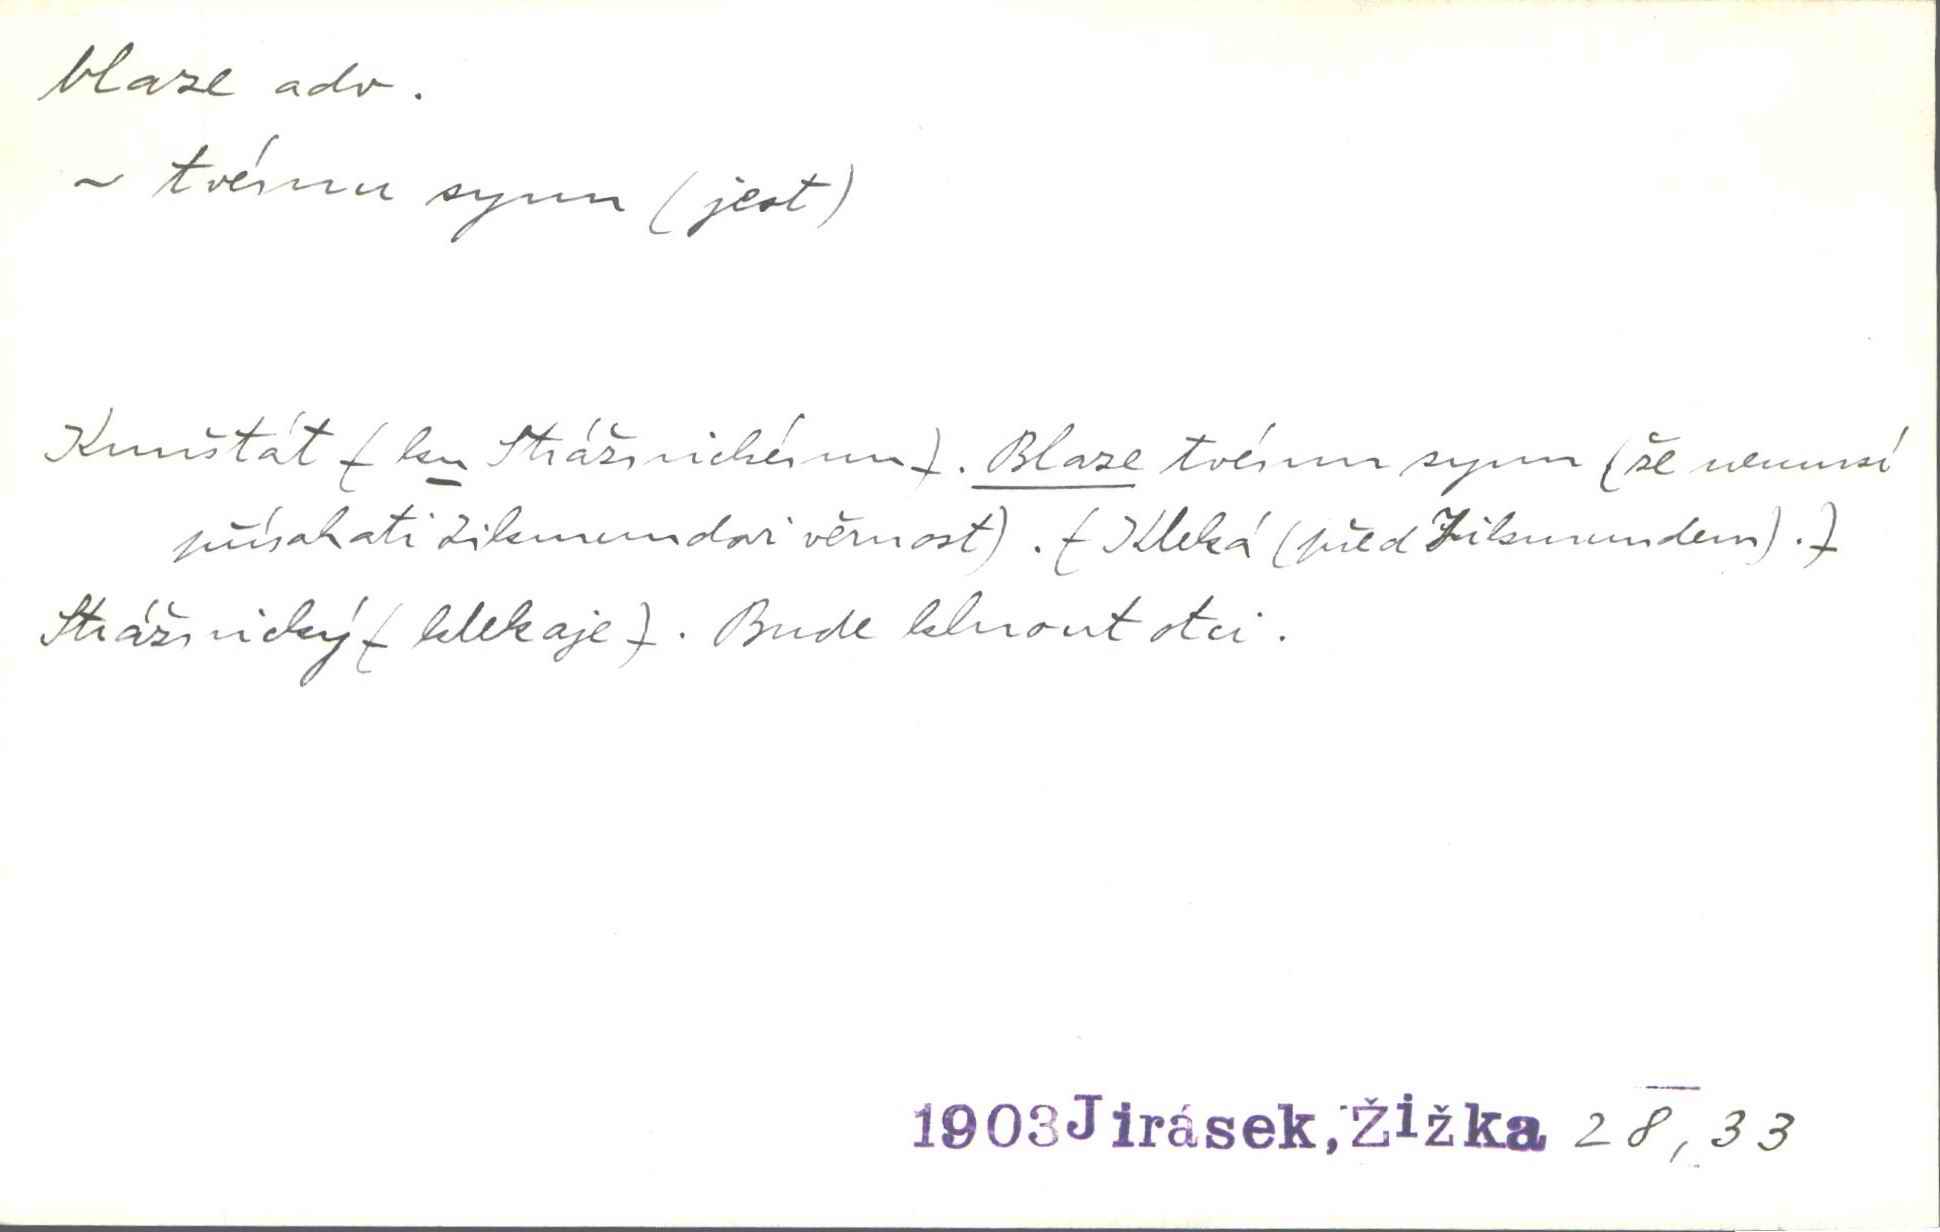 blaze adv.
~ tvému synu (jest)
Kunštát (ku Strážnickému). Blaze tvému synu (že nemusí
přísahati Zikmundovi věrnost). (Kleká (před Zikmundem).)
Strážnický (klekaje). Bude klnout otci.
1903 Jirásek, Žižka 28, 33